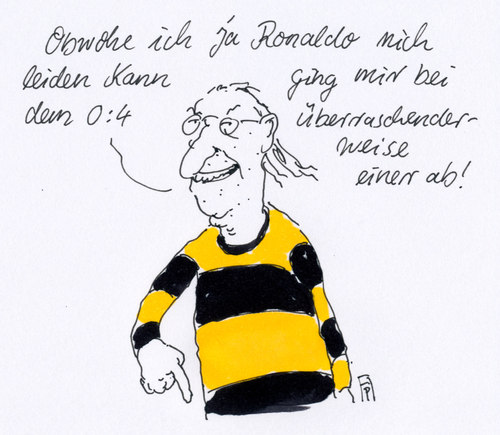 Obwohl ich ja Ronaldo nich
leiden kann ging mir bei
dem 0:4 überraschender-
weise
einer ab!